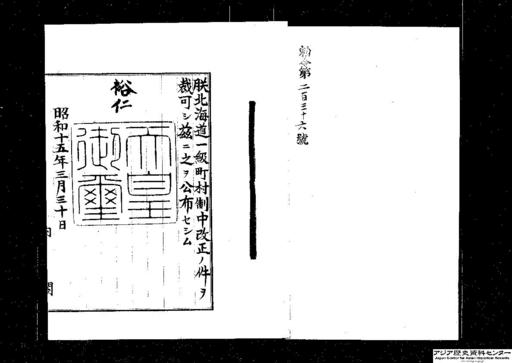 勅令第二百三十六號
朕北海道一級町村制中改正ノ件ヲ
裁可シ茲ニ之ヲ公布セシム
裕仁
天皇
御璽
昭和十五年三月三十日
内閣
アジア歴史資料センター
Japan Center for Asian Historical Records